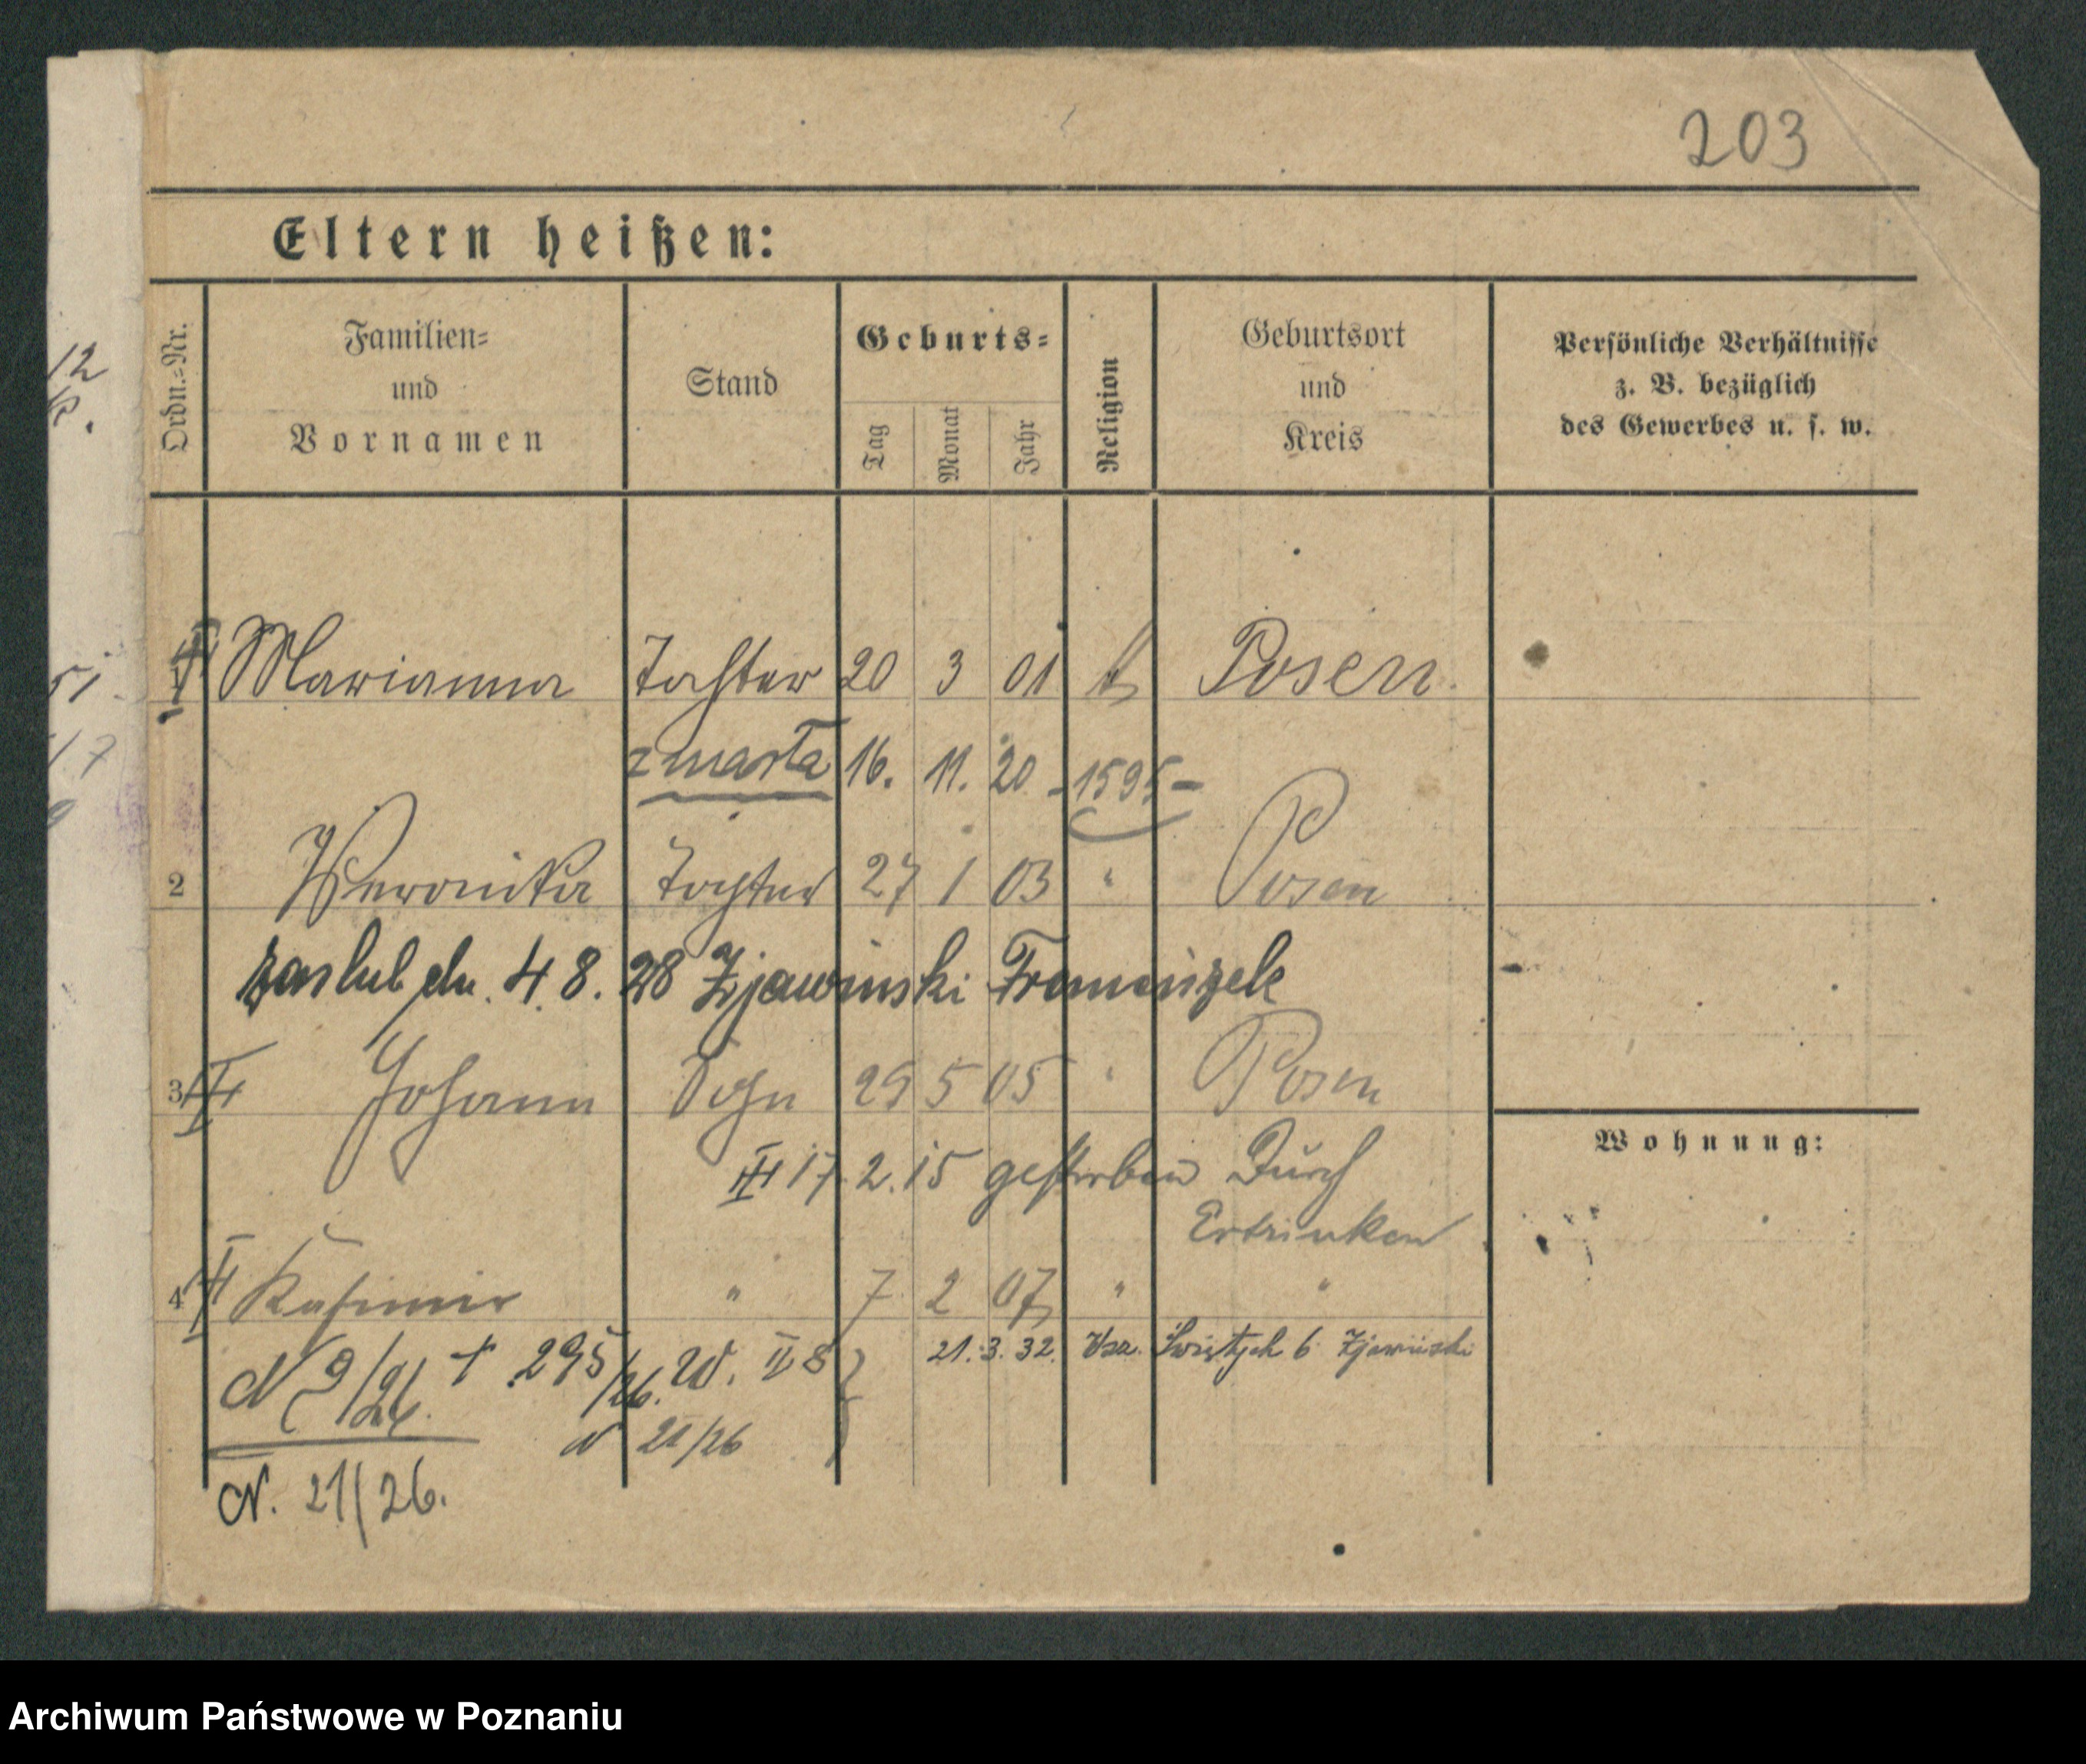 203
Eltern heißen:
Ordn.-Nr.
Familien-
und
Vornamen
Stand
Geburts-
Tag
Monat
Jahr
Religion
Geburtsort
und
Kreis
Persönliche Verhältnisse
z. B. bezüglich
des Gewerbes u. s. w.
12
51
17
Marianna Tochter 20 3 01 k Posen.
zmarła 16. 11. 20 - 1595 -
2 Weronika Tochter 27 1 03 " Posen
zaslub dn. 4.8.28 Zjawinski
3 Johann Sohn 29 5 05 " Posen
17.2.15 gestorben Durch
Ertrinken
Wohnung:
4 Kasimir " 7 2 07 " "
N 9/26. + 295/26. W. II 8
21.3.32. 6 Zjawiński
N 21/26
N. 21/26.
Archiwum Państwowe w Poznaniu